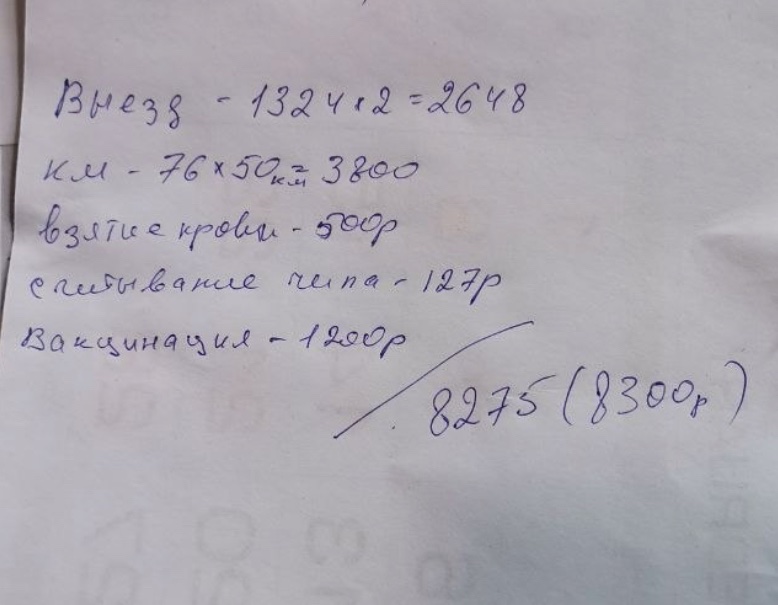 Выезд - 1324 × 2 = 2648
км - 76 × 50км = 3800
взятие крови - 500р
считывание чипа - 127р
Вакцинация - 1200р
8275 (8300р)